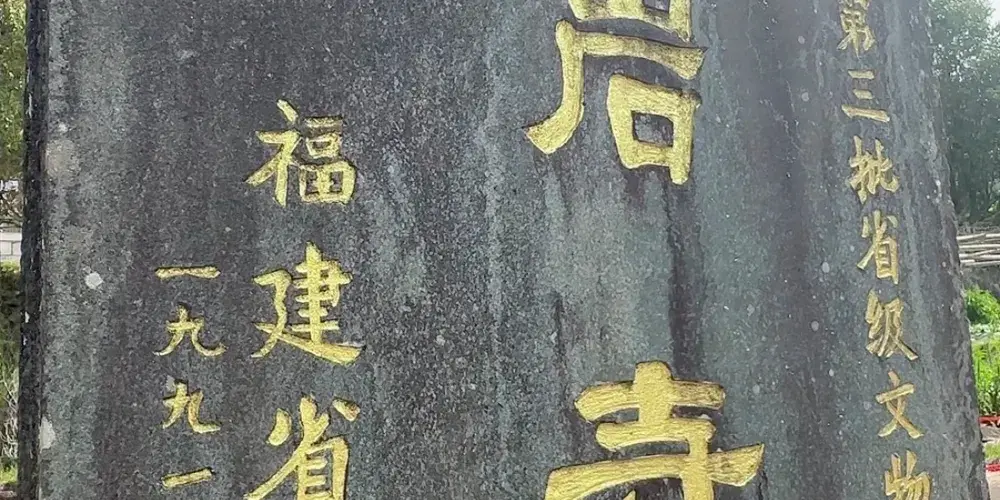 第三批省级文物
岩寺
福建省
一九九一